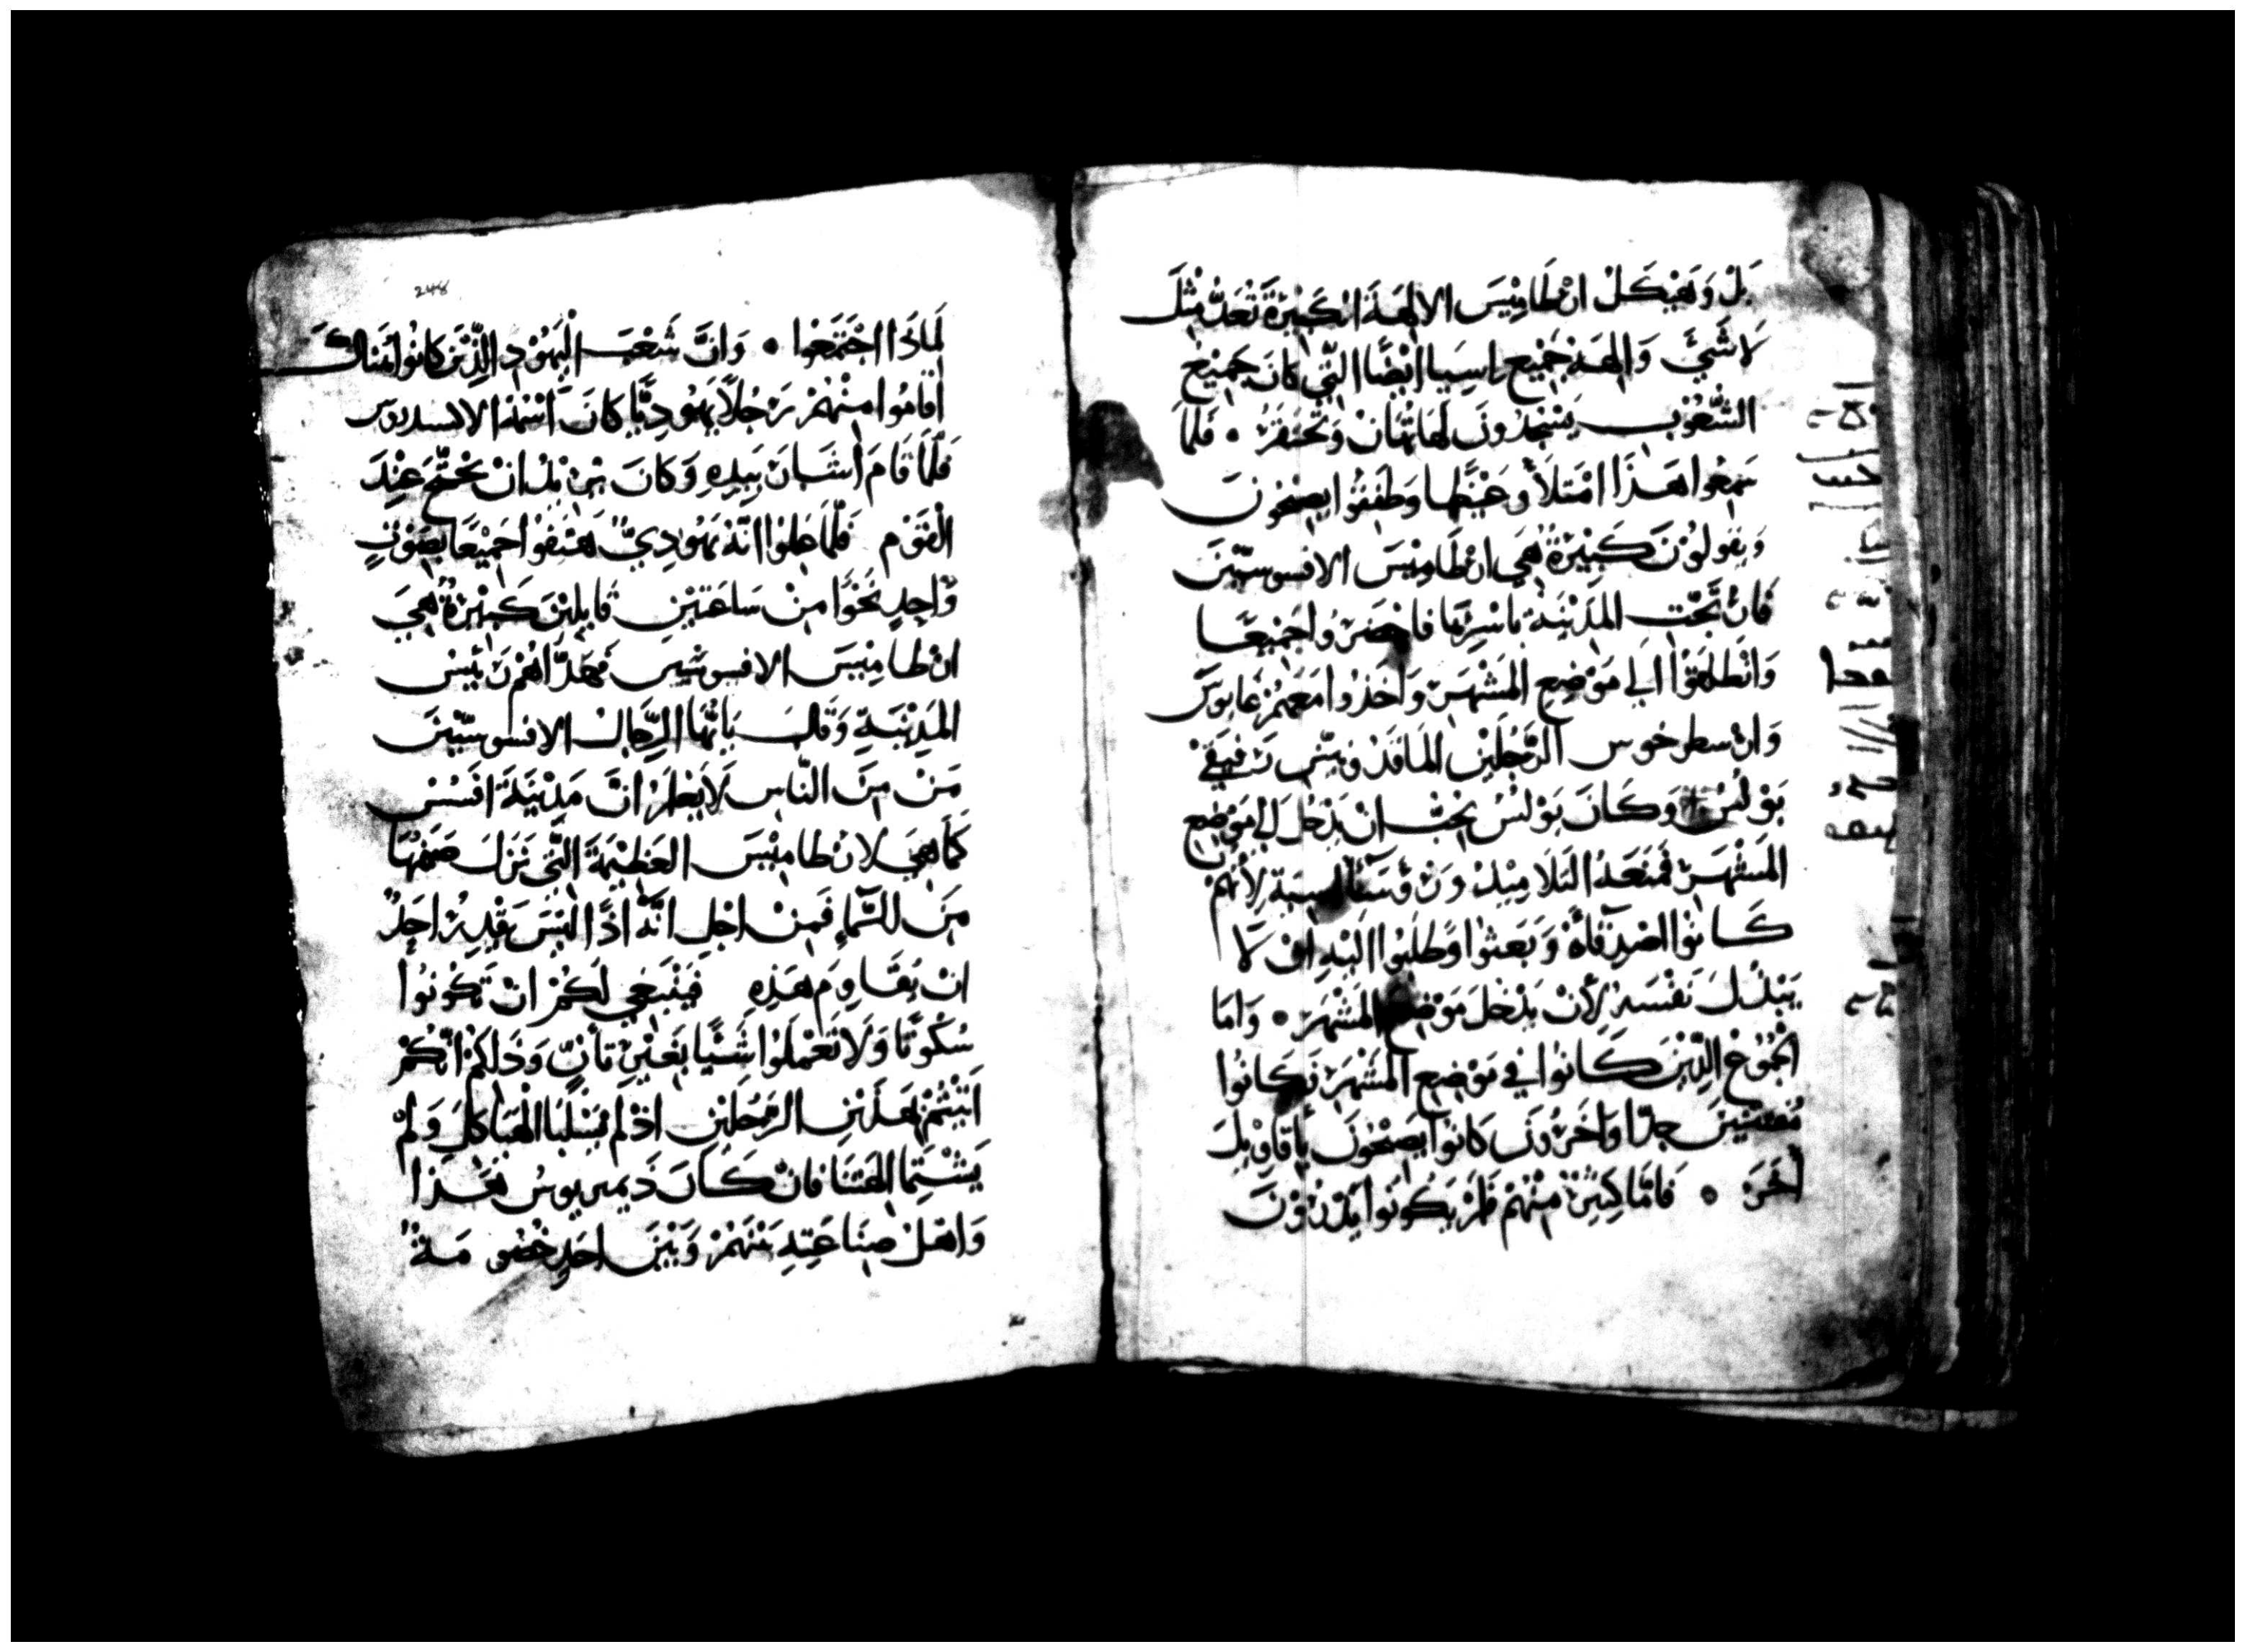 بَلْ وَهَيْكَلْ ارْطَامِيْسَ الالِهَةِ الكَبِيْرَةِ تُعَدُّ مِثْلَ
لاَ شَيْءَ وَالِهَة جَمِيْع اسِيا ايْضًا الَّتِي كَانَ جَمِيْعَ
الشُّعُوْبِ يَسْجُدُونَ لَهَا تُهَانْ وَتُحْتَقَرُ • فَلَمَا
سَمِعُوا هَذَا امْتَلأُو غَيْظًا وَطَفِقُوا يَصِيْحُونَ
وَيَقُولُوْنَ كَبِيْرَةٌ هِيَ ارْطَامِيْسَ الافسوسيّيْنَ
فَارْتَجَّتِ المَدِيْنَةِ بِاسْرِهَا فَاحْضَرُوا جَمِيْعًا
وَانْطَلَقُوْا الَي مَوْضِعِ المَشْهَرِ وَاخَذُوا مَعَهُمْ غَايوسَ
وَارسطرخوس الرَّجُلَيْنِ المَاقَدْونيّينِ رَفِيْقَيْ
بَوْلُسْ وَكَانَ بَوْلُسُ يُحِبُّ انْ يَدْخُلَ الَي مَوْضِعِ
المَشْهَرِ فَمَنَعَهُ التَلاَمِيْذْ وَرُؤَسَآ اسية لأَنَّهُمْ
كَانُوا اصْدِقَآهُ وَبَعَثوا وَطَلَبُوا الَيْهِ انْ لاَ
يَبْذُلَ نَفْسَهُ لأَنْ يَدْخُلَ مَوْضِعَ المَشْهَرِ • وَامَا
الجُمُوْع الذِّيْنَ كَانُوا فِي مَوْضِعِ المَشْهَرِ فَكَانُوا
جِدًا وَاخَرُوْنَ كَانُوا يَصِيْحُوْنَ بِأَقَاوِيْلَ
أُخَرَ • فَامَّا كَثِيْرٌ مِنْهُمْ فَلَمْ يَكُونُوا يَدْرُوْنَ
248
لِمَاذَا اجْتَمَعُوا • وَانَّ شَعْبَ الْيَهُوْدِ الذِّيْنَ كَانُوا هُنَاكَ
اقَامُوا مِنْهُمْ رَجُلاً يَهُودِيًّا كَانَ اسْمُهُ الاكسندروس
فَلَمَّا قَامَ اشَارَ بِيَدِهِ وَكَانَ يُرِيْدُ انْ يَحْتَجَّ عِنْدَ
الْقَوْمِ فَلَمَّا عَلِمُوْا انَّهُ يَهُوْدِيٌّ هَتَفُوْا جَمِيْعًا بِصَوْتٍ
وَّاحِدٍ نَحْوًا مِنْ سَاعَتَيْنِ قَايِلِيْنَ كَبِيْرَةٌ هِيَ
ارْطَامِيْسَ الافسوسيّينَ فَهَدَّاهُمْ رَئِيْسْ
المَدِيْنَةِ وَقَالَ يَاايُّهَا الرِّجَالُ الافسوسيّيْنَ
مَنْ مِنَ النَّاسِ لاَ يَعْلَمُ انَّ مَدِيْنَةَ افَسُسْ
كَمَا هِيَ لارْطَامِيْسَ العَظِيْمَةِ الَّتِي نَزَلَ صَنَمُهَا
مِنَ السَّمَآءِ فَمِنْ اجْلِ انَّهُ اذًا لَيْسَ يَقْدِرْ احَدٌ
انْ يُقَاوِمَ هَذِهِ فَيَنْبَغِي لَكُمْ انْ تَكُوْنُوْا
سُكُوْتًا وَلاَ تَعْمَلُوْا شَيْئًا بِغَيْرِ تَأَنٍّ وَذَلِكُمْ انَّكُمْ
اتَيْتُمْ بِهَذَيْنِ الرَّجُلَيْنِ اذْ لَمْ يَسْلُبَا الْهَيَاكِلَ وَلَمْ
يَشْتِمَا الِهَتَنَا فَانْ كَانَ دَيمتريوسُ هَذَا
وَاهْلُ صِنَاعَتِهِ بَيْنَهُمْ وَبَيْنَ احَدٍ خُصُومَةٌ